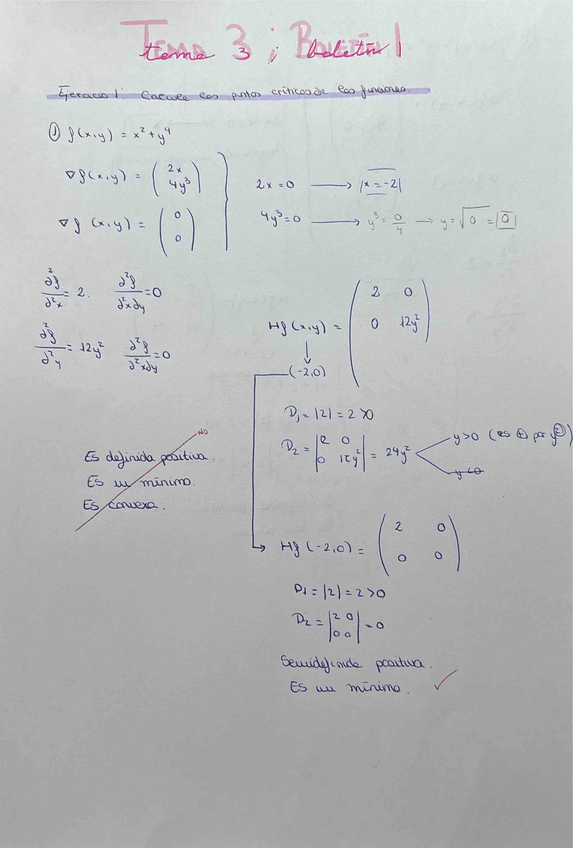 Tema 3; Boletín 1
Ejercicio 1: Calcule los puntos críticos de las funciones.
① f(x,y) = x² + y⁴
∇f(x,y) = (2x 4y³)
∇f(x,y) = (0 0)
2x = 0 → |x = -2|
4y³ = 0 → y³ = 0/4 → y = √0 = 0
∂²f/∂²x = 2. ∂²f/∂²x∂y = 0
∂²f/∂²y = 12y² ∂²f/∂²x∂y = 0
Hf(x,y) = (2 0 0 12y²)
↓
(-2,0)
D₁ = |2| = 2 > 0
D₂ = |2 0 0 12y²| = 24y²
y>0 (es ⊕ por y²)
y<0
NO
Es definida positiva.
Es un mínimo.
Es convexa.
→ Hf(-2,0) = (2 0 0 0)
D1 = |2| = 2 > 0
D₂ = |2 0 0 0| = 0
Semidefinida positiva.
Es un mínimo. ✓